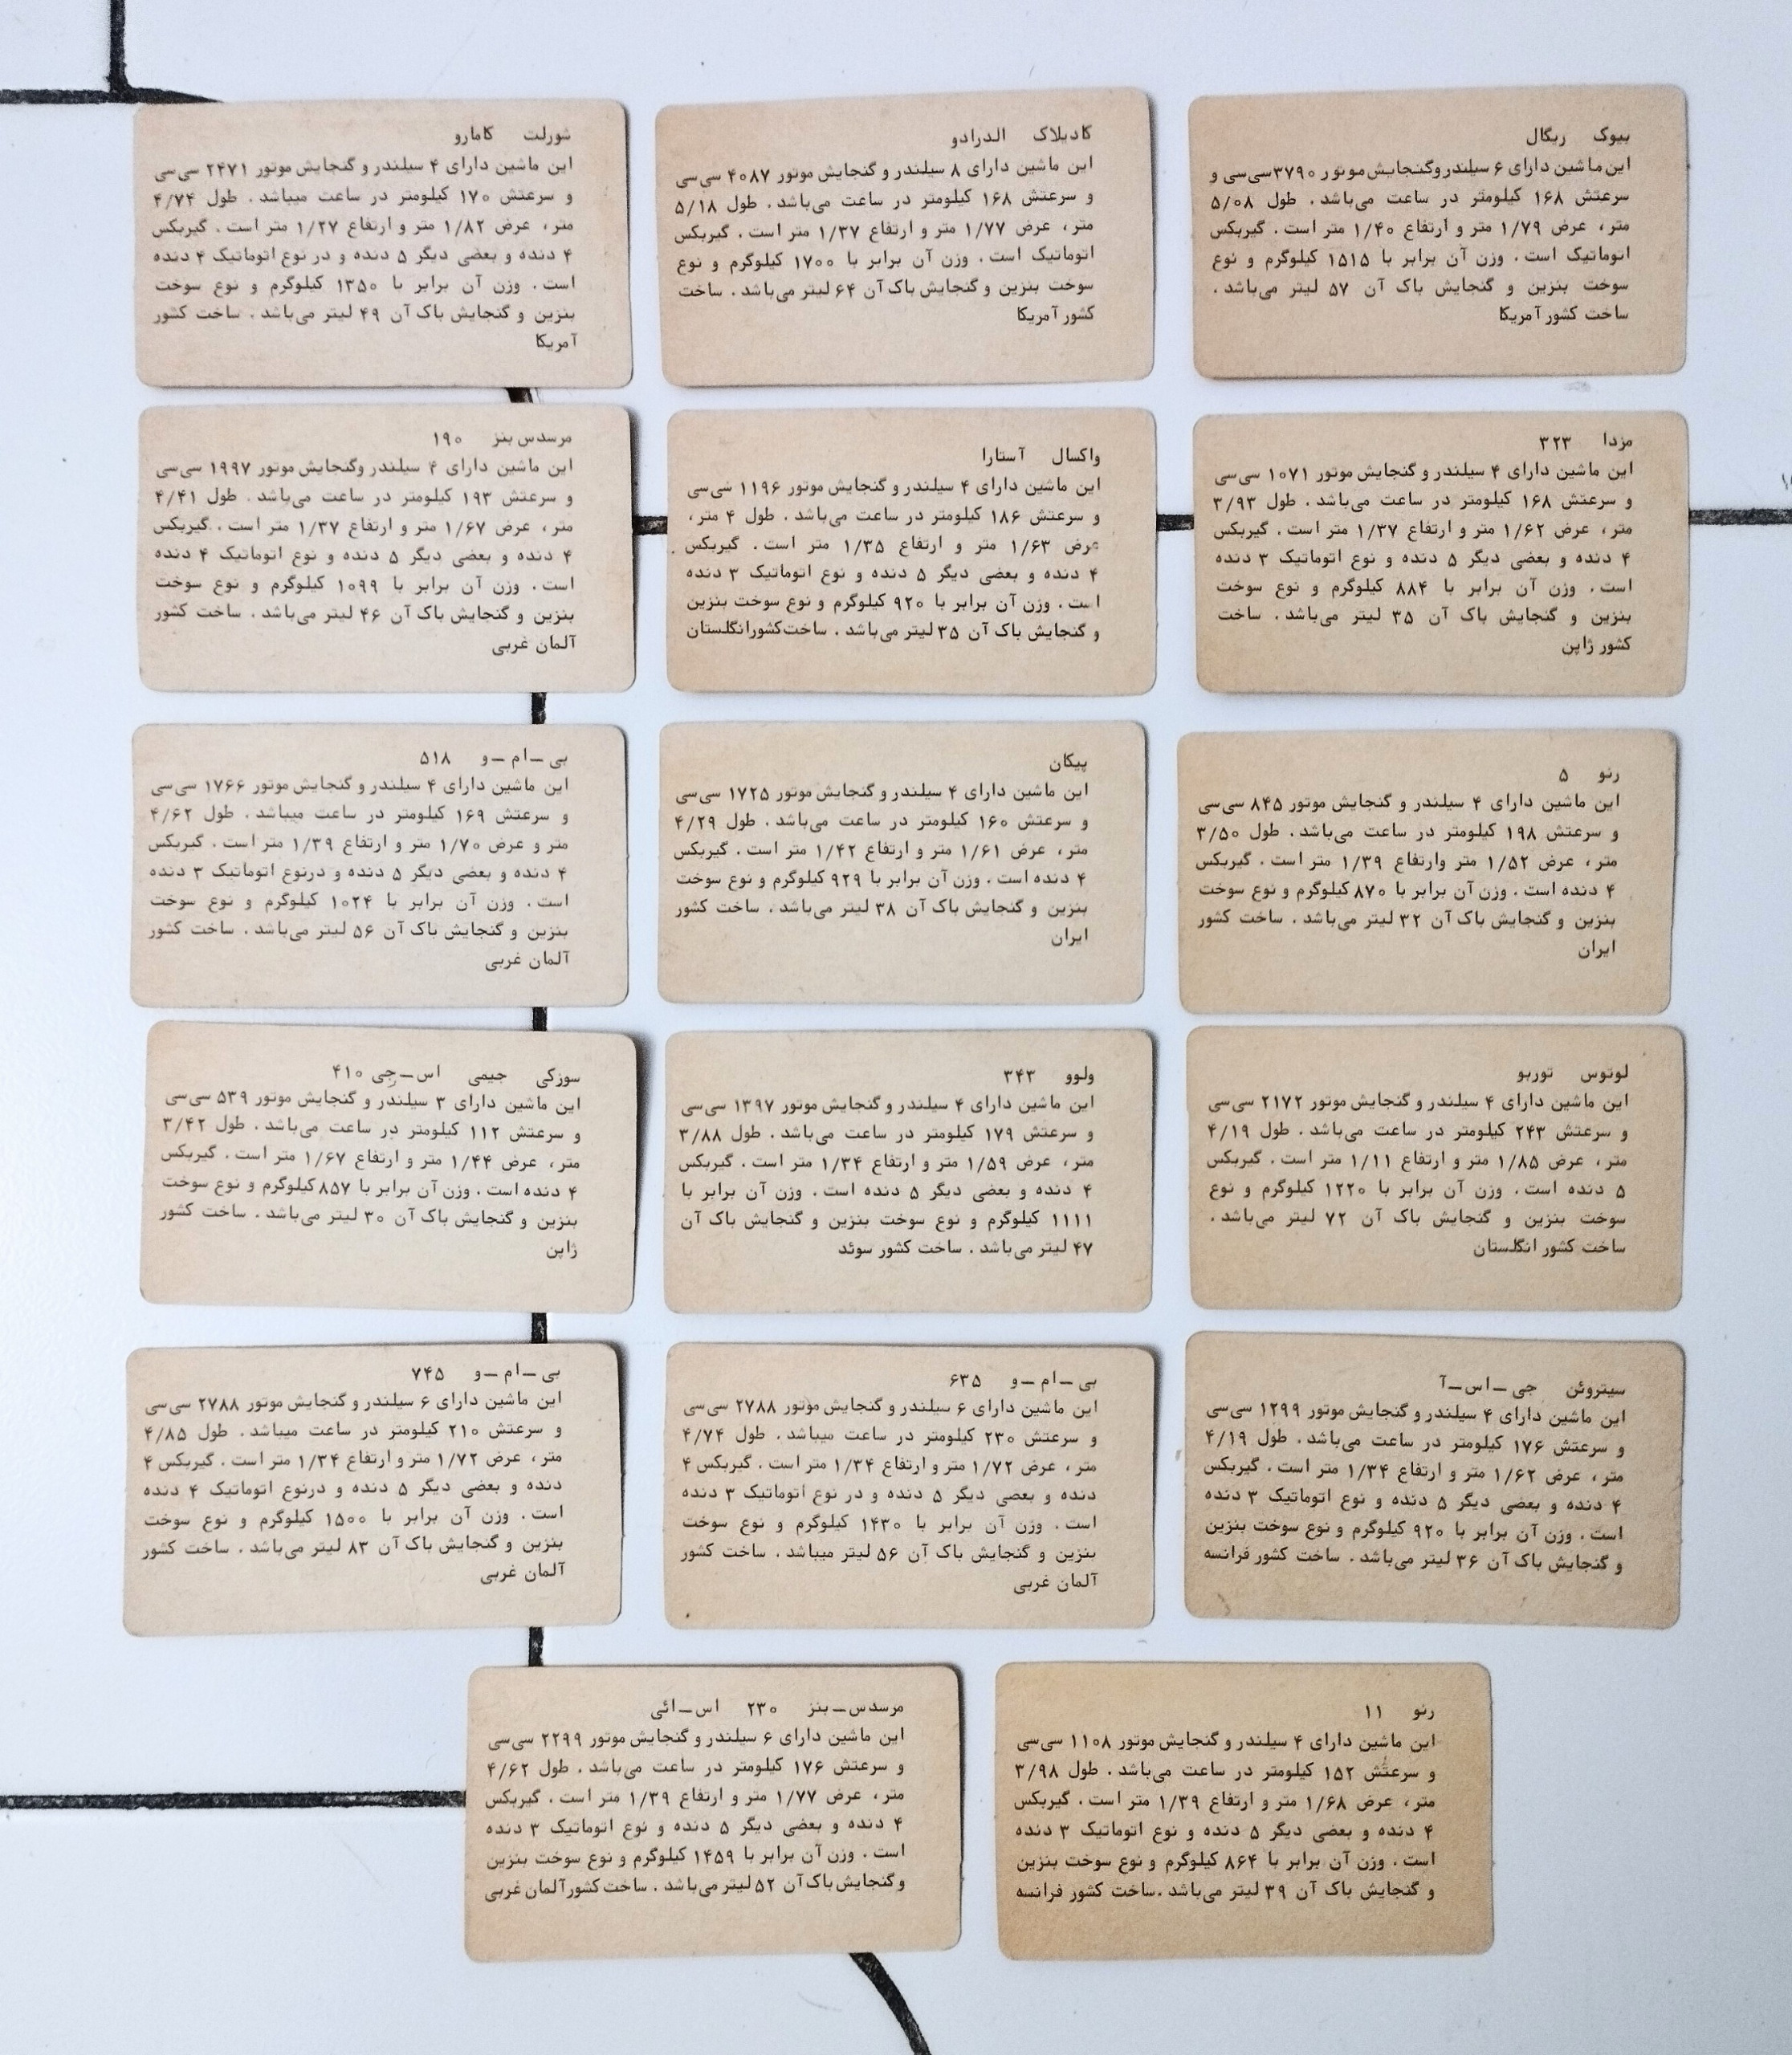 بیوک ریگال
این ماشین دارای ۶ سیلندر و گنجایش موتور ۳۷۹۰ سی‌سی و
سرعتش ۱۶۸ کیلومتر در ساعت می‌باشد . طول ۵/۰۸
متر ، عرض ۱/۷۹ متر و ارتفاع ۱/۴۰ متر است . گیربکس
اتوماتیک است . وزن آن برابر با ۱۵۱۵ کیلوگرم و نوع
سوخت بنزین و گنجایش باک آن ۵۷ لیتر می‌باشد .
ساخت کشور آمریکا
کادیلاک الدرادو
این ماشین دارای ۸ سیلندر و گنجایش موتور ۴۰۸۷ سی‌سی
و سرعتش ۱۶۸ کیلومتر در ساعت می‌باشد . طول ۵/۱۸
متر ، عرض ۱/۷۷ متر و ارتفاع ۱/۳۷ متر است . گیربکس
اتوماتیک است . وزن آن برابر با ۱۷۰۰ کیلوگرم و نوع
سوخت بنزین و گنجایش باک آن ۶۴ لیتر می‌باشد . ساخت
کشور آمریکا
شورلت کامارو
این ماشین دارای ۴ سیلندر و گنجایش موتور ۲۴۷۱ سی‌سی
و سرعتش ۱۷۰ کیلومتر در ساعت میباشد . طول ۴/۷۴
متر ، عرض ۱/۸۲ متر و ارتفاع ۱/۲۷ متر است . گیربکس
۴ دنده و بعضی دیگر ۵ دنده و در نوع اتوماتیک ۴ دنده
است . وزن آن برابر با ۱۳۵۰ کیلوگرم و نوع سوخت
بنزین و گنجایش باک آن ۴۹ لیتر می‌باشد . ساخت کشور
آمریکا
مزدا ۳۲۳
این ماشین دارای ۴ سیلندر و گنجایش موتور ۱۰۷۱ سی‌سی
و سرعتش ۱۶۸ کیلومتر در ساعت می‌باشد . طول ۳/۹۳
متر ، عرض ۱/۶۲ متر و ارتفاع ۱/۳۷ متر است . گیربکس
۴ دنده و بعضی دیگر ۵ دنده و نوع اتوماتیک ۳ دنده
است . وزن آن برابر با ۸۸۴ کیلوگرم و نوع سوخت
بنزین و گنجایش باک آن ۳۵ لیتر می‌باشد . ساخت
کشور ژاپن
واکسال آستارا
این ماشین دارای ۴ سیلندر و گنجایش موتور ۱۱۹۶ سی‌سی
و سرعتش ۱۸۶ کیلومتر در ساعت می‌باشد . طول ۴ متر ،
عرض ۱/۶۳ متر و ارتفاع ۱/۳۵ متر است . گیربکس
۴ دنده و بعضی دیگر ۵ دنده و نوع اتوماتیک ۳ دنده
است . وزن آن برابر با ۹۲۰ کیلوگرم و نوع سوخت بنزین
و گنجایش باک آن ۳۵ لیتر می‌باشد . ساخت کشور انگلستان
مرسدس بنز ۱۹۰
این ماشین دارای ۴ سیلندر وگنجایش موتور ۱۹۹۷ سی‌سی
و سرعتش ۱۹۳ کیلومتر در ساعت می‌باشد . طول ۴/۴۱
متر ، عرض ۱/۶۷ متر و ارتفاع ۱/۳۷ متر است . گیربکس
۴ دنده و بعضی دیگر ۵ دنده و نوع اتوماتیک ۴ دنده
است . وزن آن برابر با ۱۰۹۹ کیلوگرم و نوع سوخت
بنزین و گنجایش باک آن ۴۶ لیتر می‌باشد . ساخت کشور
آلمان غربی
رنو ۵
این ماشین دارای ۴ سیلندر و گنجایش موتور ۸۴۵ سی‌سی
و سرعتش ۱۹۸ کیلومتر در ساعت می‌باشد . طول ۳/۵۰
متر ، عرض ۱/۵۲ متر وارتفاع ۱/۳۹ متر است . گیربکس
۴ دنده است . وزن آن برابر با ۸۷۰ کیلوگرم و نوع سوخت
بنزین و گنجایش باک آن ۳۲ لیتر می‌باشد . ساخت کشور
ایران
پیکان
این ماشین دارای ۴ سیلندر و گنجایش موتور ۱۷۲۵ سی‌سی
و سرعتش ۱۶۰ کیلومتر در ساعت می‌باشد . طول ۴/۲۹
متر ، عرض ۱/۶۱ متر و ارتفاع ۱/۴۲ متر است . گیربکس
۴ دنده است . وزن آن برابر با ۹۲۹ کیلوگرم و نوع سوخت
بنزین و گنجایش باک آن ۳۸ لیتر می‌باشد . ساخت کشور
ایران
بی – ام – و ۵۱۸
این ماشین دارای ۴ سیلندر و گنجایش موتور ۱۷۶۶ سی‌سی
و سرعتش ۱۶۹ کیلومتر در ساعت میباشد . طول ۴/۶۲
متر و عرض ۱/۷۰ متر و ارتفاع ۱/۳۹ متر است . گیربکس
۴ دنده و بعضی دیگر ۵ دنده و درنوع اتوماتیک ۳ دنده
است . وزن آن برابر با ۱۰۲۴ کیلوگرم و نوع سوخت
بنزین و گنجایش باک آن ۵۶ لیتر می‌باشد . ساخت کشور
آلمان غربی
لوتوس توربو
این ماشین دارای ۴ سیلندر و گنجایش موتور ۲۱۷۲ سی‌سی
و سرعتش ۲۴۳ کیلومتر در ساعت می‌باشد . طول ۴/۱۹
متر ، عرض ۱/۸۵ متر و ارتفاع ۱/۱۱ متر است . گیربکس
۵ دنده است . وزن آن برابر با ۱۲۲۰ کیلوگرم و نوع
سوخت بنزین و گنجایش باک آن ۷۲ لیتر می‌باشد .
ساخت کشور انگلستان
ولوو ۳۴۳
این ماشین دارای ۴ سیلندر و گنجایش موتور ۱۳۹۷ سی‌سی
و سرعتش ۱۷۹ کیلومتر در ساعت می‌باشد . طول ۳/۸۸
متر ، عرض ۱/۵۹ متر و ارتفاع ۱/۳۴ متر است . گیربکس
۴ دنده و بعضی دیگر ۵ دنده است . وزن آن برابر با
۱۱۱۱ کیلوگرم و نوع سوخت بنزین و گنجایش باک آن
۴۷ لیتر می‌باشد . ساخت کشور سوئد
سوزکی جیمی اس – جی ۴۱۰
این ماشین دارای ۳ سیلندر و گنجایش موتور ۵۳۹ سی‌سی
و سرعتش ۱۱۲ کیلومتر در ساعت می‌باشد . طول ۳/۴۲
متر ، عرض ۱/۴۴ متر و ارتفاع ۱/۶۷ متر است . گیربکس
۴ دنده است . وزن آن برابر با ۸۵۷ کیلوگرم و نوع سوخت
بنزین و گنجایش باک آن ۳۰ لیتر می‌باشد . ساخت کشور
ژاپن
سیتروئن جی – اس – آ
این ماشین دارای ۴ سیلندر و گنجایش موتور ۱۲۹۹ سی‌سی
و سرعتش ۱۷۶ کیلومتر در ساعت می‌باشد . طول ۴/۱۹
متر ، عرض ۱/۶۲ متر و ارتفاع ۱/۳۴ متر است . گیربکس
۴ دنده و بعضی دیگر ۵ دنده و نوع اتوماتیک ۳ دنده
است . وزن آن برابر با ۹۲۰ کیلوگرم و نوع سوخت بنزین
و گنجایش باک آن ۳۶ لیتر می‌باشد . ساخت کشور فرانسه
بی – ام – و ۶۳۵
این ماشین دارای ۶ سیلندر و گنجایش موتور ۲۷۸۸ سی‌سی
و سرعتش ۲۳۰ کیلومتر در ساعت میباشد . طول ۴/۷۴
متر ، عرض ۱/۷۲ متر و ارتفاع ۱/۳۴ متر است . گیربکس ۴
دنده و بعصی دیگر ۵ دنده و در نوع اتوماتیک ۳ دنده
است . وزن آن برابر با ۱۴۳۰ کیلوگرم و نوع سوخت
بنزین و گنجایش باک آن ۵۶ لیتر میباشد . ساخت کشور
آلمان غربی
بی – ام – و ۷۴۵
این ماشین دارای ۶ سیلندر و گنجایش موتور ۲۷۸۸ سی‌سی
و سرعتش ۲۱۰ کیلومتر در ساعت میباشد . طول ۴/۸۵
متر ، عرض ۱/۷۲ متر و ارتفاع ۱/۳۴ متر است . گیربکس ۴
دنده و بعضی دیگر ۵ دنده و درنوع اتوماتیک ۴ دنده
است . وزن آن برابر با ۱۵۰۰ کیلوگرم و نوع سوخت
بنزین و گنجایش باک آن ۸۳ لیتر می‌باشد . ساخت کشور
آلمان غربی
رنو ۱۱
این ماشین دارای ۴ سیلندر و گنجایش موتور ۱۱۰۸ سی‌سی
و سرعتش ۱۵۲ کیلومتر در ساعت می‌باشد . طول ۳/۹۸
متر ، عرض ۱/۶۸ متر و ارتفاع ۱/۳۹ متر است . گیربکس
۴ دنده و بعضی دیگر ۵ دنده و نوع اتوماتیک ۳ دنده
است . وزن آن برابر با ۸۶۴ کیلوگرم و نوع سوخت بنزین
و گنجایش باک آن ۳۹ لیتر می‌باشد . ساخت کشور فرانسه
مرسدس – بنز ۲۳۰ اس – ائی
این ماشین دارای ۶ سیلندر و گنجایش موتور ۲۲۹۹ سی‌سی
و سرعتش ۱۷۶ کیلومتر در ساعت می‌باشد . طول ۴/۶۲
متر ، عرض ۱/۷۷ متر و ارتفاع ۱/۳۹ متر است . گیربکس
۴ دنده و بعضی دیگر ۵ دنده و نوع اتوماتیک ۳ دنده
است . وزن آن برابر با ۱۴۵۹ کیلوگرم و نوع سوخت بنزین
و گنجایش باک آن ۵۲ لیتر می‌باشد . ساخت کشور آلمان غربی